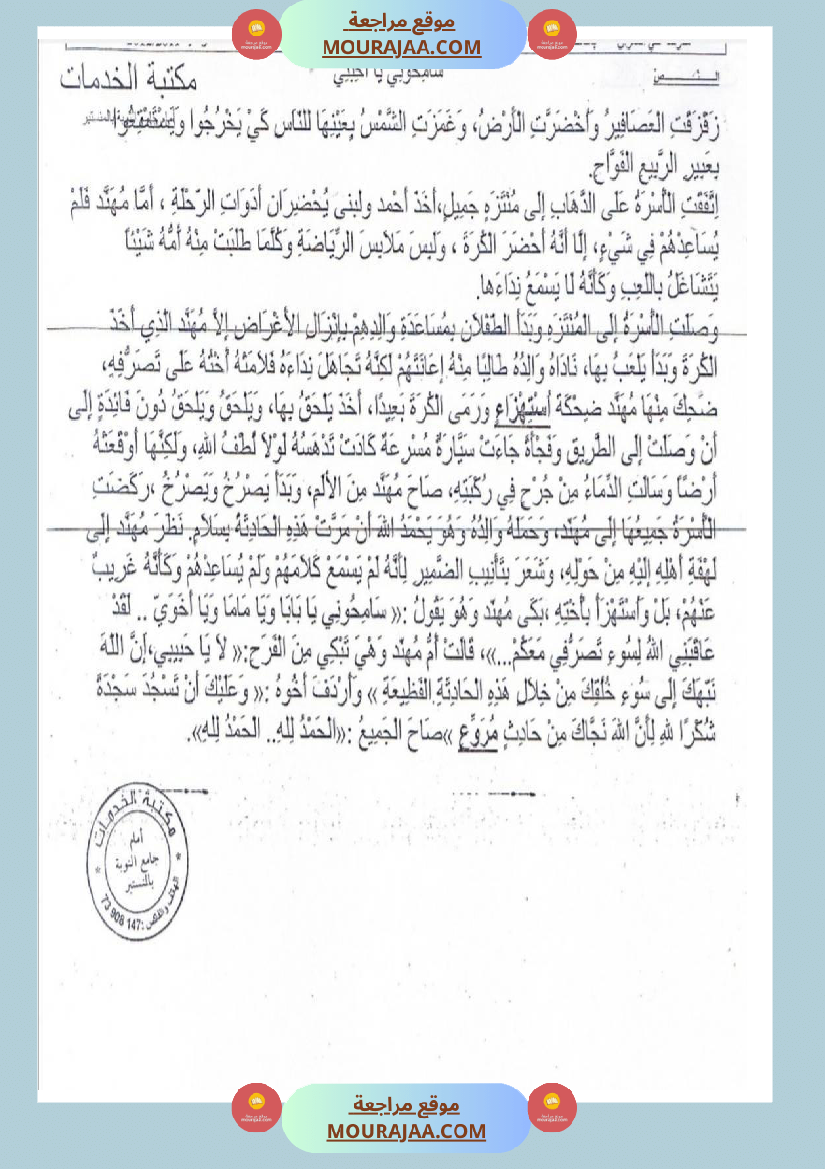 موقع مراجعة
MOURAJAA.COM
سَامِحُونِي يَا أَحِبَّتِي
النّص
مكتبة الخدمات
زَقْزَقَتِ الْعَصَافِيرُ وَاخْضَرَّتِ الْأَرْضُ، وَغَمَزَتِ الشَّمْسُ بِعَيْنِهَا لِلنَّاسِ كَيْ يَخْرُجُوا وَيَسْتَمْتِعُوا
بِعَبِيرِ الرَّبِيعِ الْفَوَّاحِ.
اِتَّفَقَتِ الْأُسْرَةُ عَلَى الذَّهَابِ إِلَى مُنْتَزَهٍ جَمِيلٍ،أَخَذَ أَحْمد ولبنى يُحْضِرَانِ أَدَوَاتِ الرِّحْلَةِ ، أَمَّا مُهَنَّد فَلَمْ
يُسَاعِدْهُمْ فِي شَيْءٍ، إِلَّا أَنَّهُ أَحْضَرَ الْكُرَةَ ، وَلَبِسَ مَلَابِسَ الرِّيَاضَةِ وَكُلَّمَا طَلَبَتْ مِنْهُ أُمُّهُ شَيْئًا
يَتَشَاغَلُ بِاللَّعِبِ وَكَأَنَّهُ لَا يَسْمَعُ نِدَاءَها.
وَصَلَتِ الْأُسْرَةُ إِلَى الْمُنْتَزَهِ وَبَدَأَ الطِّفْلَانِ بِمُسَاعَدَةِ وَالِدِهِمْ بِإِنْزَالِ الأَغْرَاضِ إِلَّا مُهَنَّد الَّذِي أَخَذَ
الْكُرَةَ وَبَدَأَ يَلْعَبُ بِهَا، نَادَاهُ وَالِدُهُ طَالِبًا مِنْهُ إِعَانَتَهُمْ لَكِنَّهُ تَجَاهَلَ نِدَاءَهُ فَلَامَتْهُ أُخْتُهُ عَلَى تَصَرُّفِهِ،
ضَحِكَ مِنْهَا مُهَنَّد ضِحْكَةَ اسْتِهْزَاءٍ وَرَمَى الْكُرَةَ بَعِيدًا، أَخَذَ يَلْحَقُ بِهَا، وَيَلْحَقُ وَيَلْحَقُ دُونَ فَائِدَةٍ إِلَى
أَنْ وَصَلَتْ إِلَى الطَّرِيقِ وَفَجْأَةً جَاءَتْ سَيَّارَةٌ مُسْرِعَةٌ كَادَتْ تَدْهَسُهُ لَوْلَا لُطْفُ اللهِ، وَلَكِنَّهَا أَوْقَعَتْهُ
أَرْضًا وَسَالَتِ الدِّمَاءُ مِنْ جُرْحٍ فِي رُكْبَتِهِ، صَاحَ مُهَنَّد مِنَ الأَلَمِ، وَبَدَأَ يَصْرُخُ وَيَصْرُخُ ،رَكَضَتِ
الْأُسْرَةُ جَمِيعُهَا إِلَى مُهَنَّد، وَحَمَلَهُ وَالِدُهُ وَهُوَ يَحْمَدُ اللهَ أَنْ مَرَّتْ هَذِهِ الْحَادِثَةُ بِسَلَامٍ. نَظَرَ مُهَنَّد إِلَى
لَهْفَةِ أَهْلِهِ إِلَيْهِ مِنْ حَوْلِهِ، وَشَعَرَ بِتَأْنِيبِ الضَّمِيرِ لِأَنَّهُ لَمْ يَسْمَعْ كَلَامَهُمْ وَلَمْ يُسَاعِدْهُمْ وَكَأَنَّهُ غَرِيبٌ
عَنْهُمْ، بَلْ وَاسْتَهْزَأَ بِأُخْتِهِ ،بَكَى مُهنّد وَهُوَ يَقُولُ :« سَامِحُونِي يَا بَابَا وَيَا مَامَا وَيَا أَخَوَيَّ .. لَقَدْ
عَاقَبَنِي اللهُ لِسُوءِ تَصَرُّفِي مَعَكُمْ...»، قَالَتْ أُمُّ مُهنّد وَهْيَ تَبْكِي مِنَ الْفَرَحِ:« لَا يَا حَبِيبِي،إِنَّ اللَّهَ
نَبَّهَكَ إِلَى سُوءِ خُلُقِكَ مِنْ خِلَالِ هَذِهِ الْحَادِثَةِ الْفَظِيعَةِ » وَأَرْدَفَ أَخُوهُ :« وَعَلَيْكَ أَنْ تَسْجُدَ سَجْدَةَ
شُكْرًا للهِ لِأَنَّ اللهَ نَجَّاكَ مِنْ حَادِثٍ مُرَوِّعٍ »صَاحَ الْجَمِيعُ :«الْحَمْدُ لِلهِ.. الْحَمْدُ لِلهِ».
مكتبة الخدمات
أمام
جامع التوبة
بالمنستير
الهاتف والفاكس :147 908 73
موقع مراجعة
MOURAJAA.COM